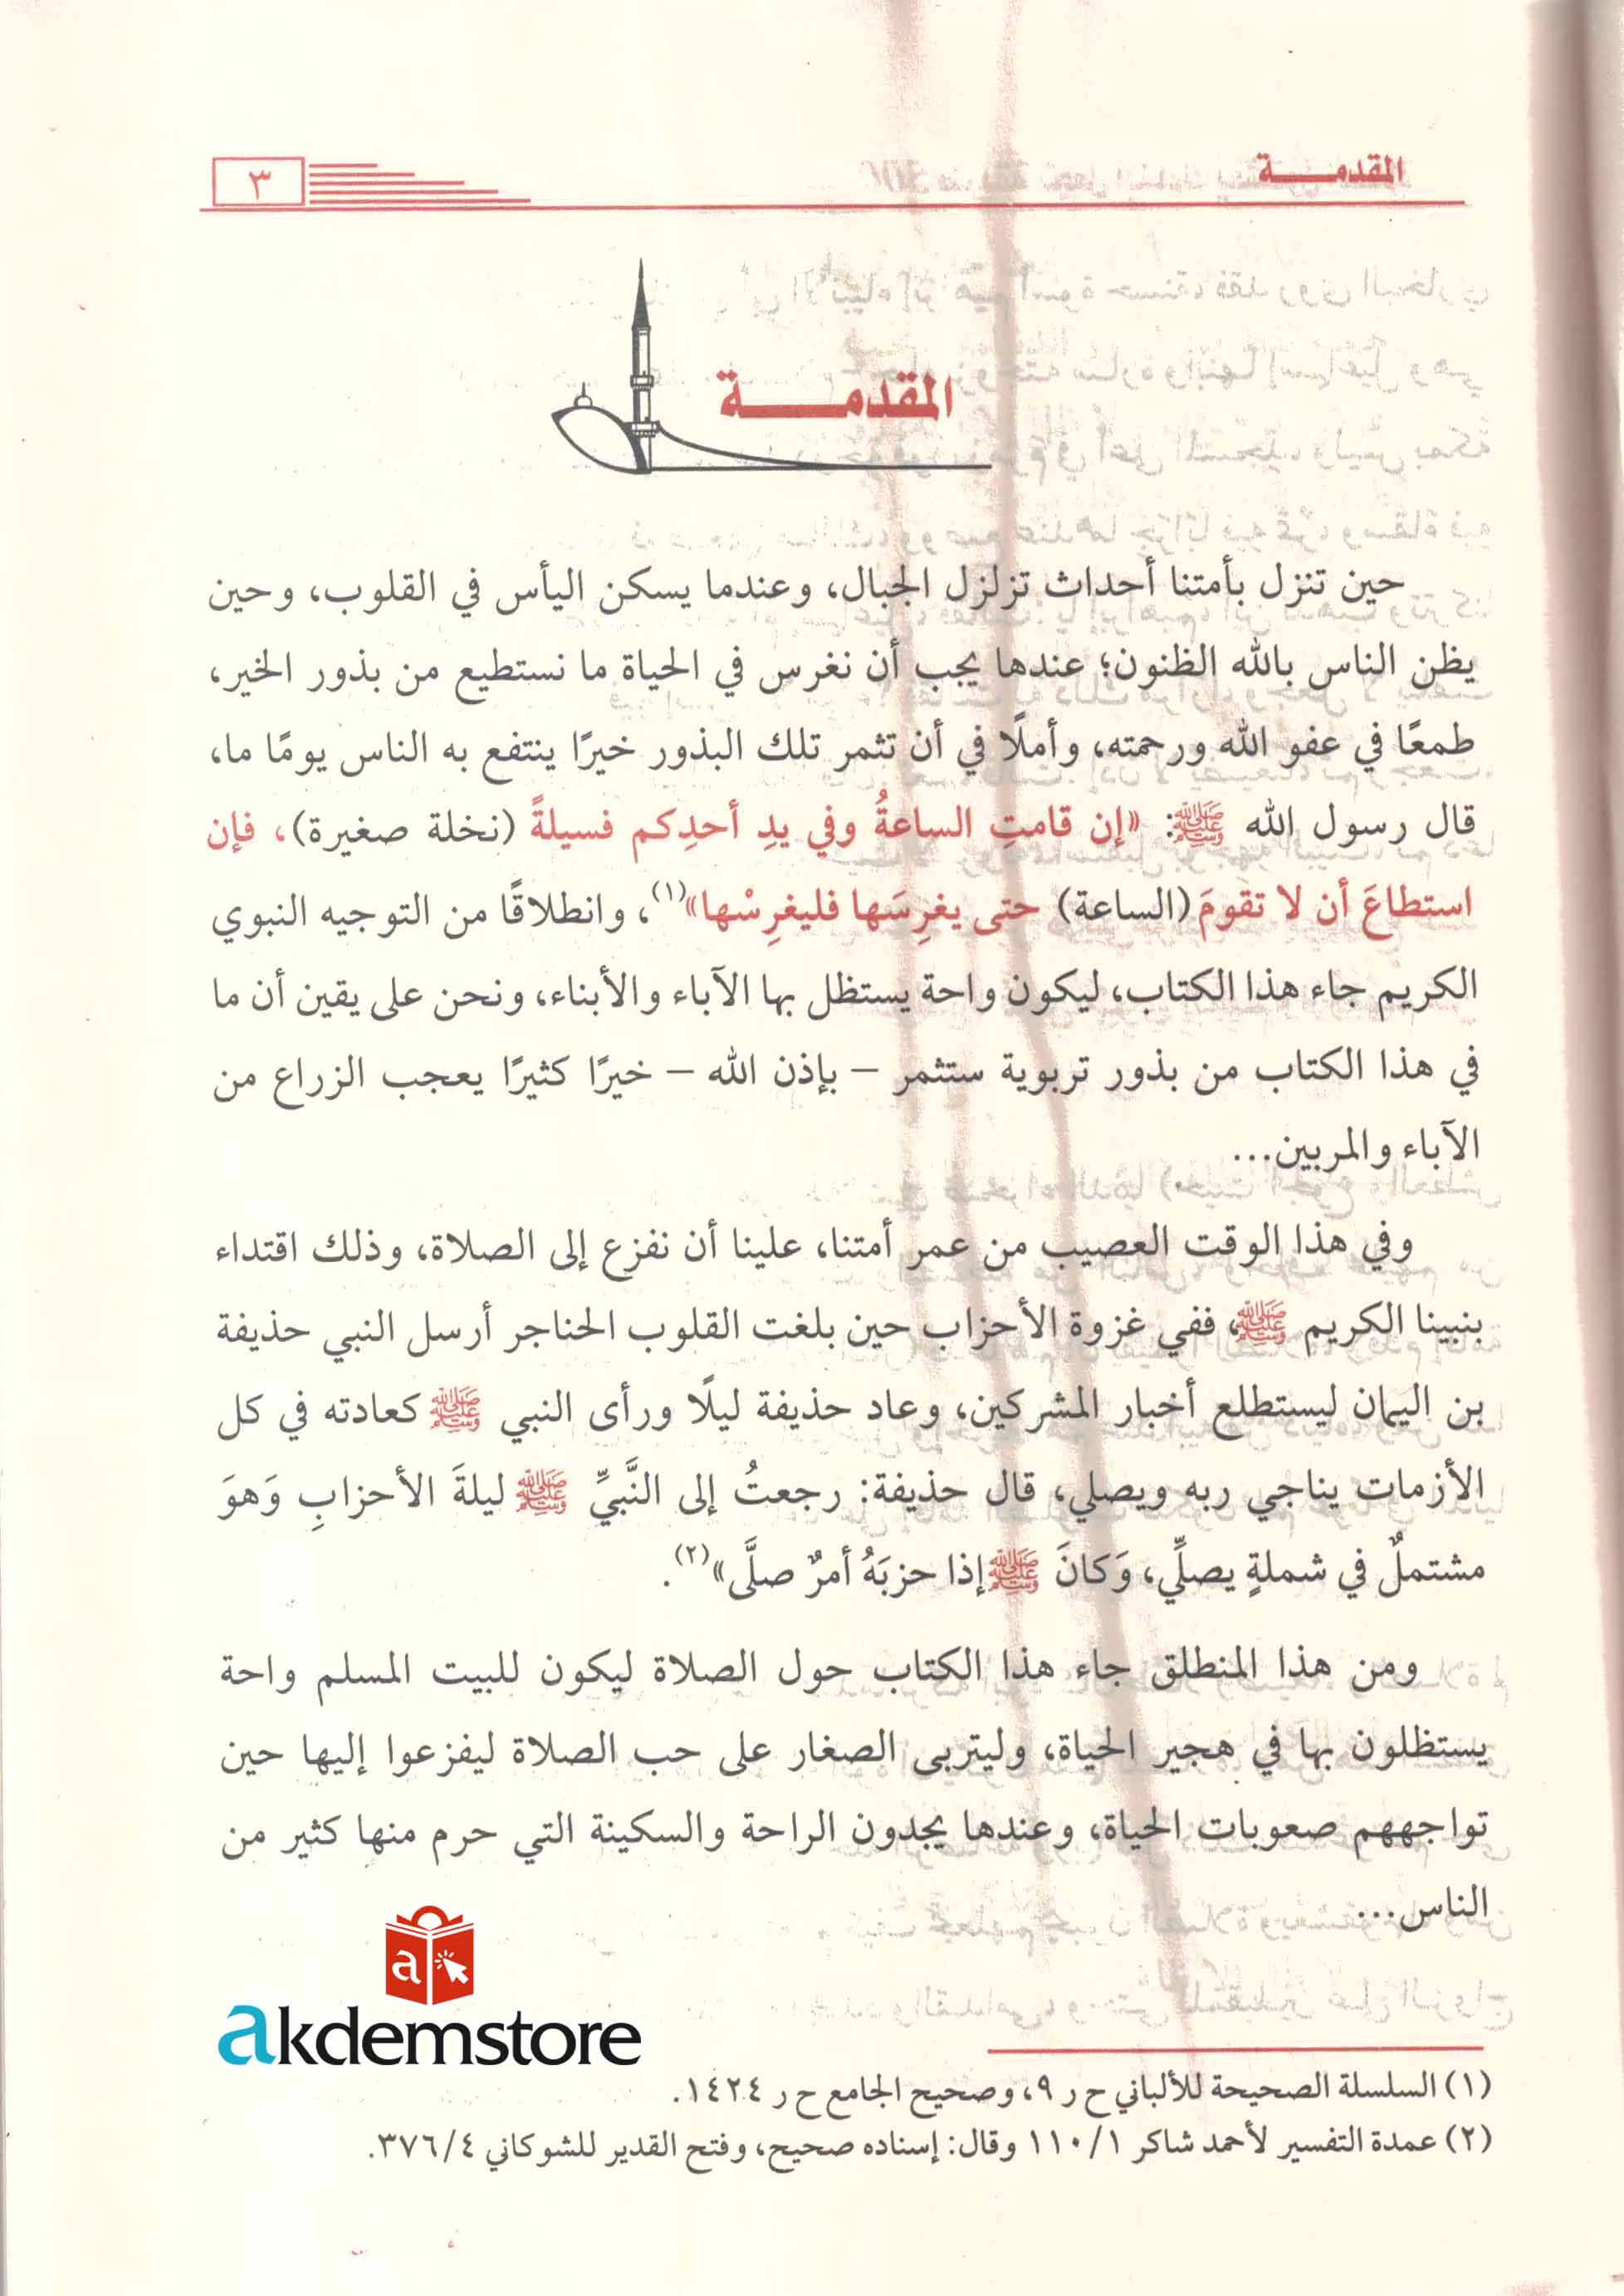 المقدمـــــة
٣
المقدمـــــة
حين تنزل بأمتنا أحداث تزلزل الجبال، وعندما يسكن اليأس في القلوب، وحين
يظن الناس بالله الظنون؛ عندها يجب أن نغرس في الحياة ما نستطيع من بذور الخير،
طمعًا في عفو الله ورحمته، وأملًا في أن تثمر تلك البذور خيرًا ينتفع به الناس يومًا ما،
قال رسول الله ﷺ: «إن قامتِ الساعةُ وفي يدِ أحدِكم فسيلةً (نخلة صغيرة)، فإن
استطاعَ أن لا تقومَ (الساعة) حتى يغرِسَها فليغرِسْها»(١)، وانطلاقًا من التوجيه النبوي
الكريم جاء هذا الكتاب، ليكون واحة يستظل بها الآباء والأبناء، ونحن على يقين أن ما
في هذا الكتاب من بذور تربوية ستثمر – بإذن الله – خيرًا كثيرًا يعجب الزراع من
الآباء والمربين...
وفي هذا الوقت العصيب من عمر أمتنا، علينا أن نفزع إلى الصلاة، وذلك اقتداء
بنبينا الكريم ﷺ، ففي غزوة الأحزاب حين بلغت القلوب الحناجر أرسل النبي حذيفة
بن اليمان ليستطلع أخبار المشركين، وعاد حذيفة ليلًا ورأى النبي ﷺ كعادته في كل
الأزمات يناجي ربه ويصلي، قال حذيفة: رجعتُ إلى النَّبيِّ ﷺ ليلةَ الأحزابِ وَهوَ
مشتملٌ في شملةٍ يصلِّي، وَكانَ ﷺ إذا حزبَهُ أمرٌ صلَّى»(٢).
ومن هذا المنطلق جاء هذا الكتاب حول الصلاة ليكون للبيت المسلم واحة
يستظلون بها في هجير الحياة، وليتربى الصغار على حب الصلاة ليفزعوا إليها حين
تواجههم صعوبات الحياة، وعندها يجدون الراحة والسكينة التي حرم منها كثير من
الناس...
a
akdemstore
(١) السلسلة الصحيحة للألباني ح ر ٩، وصحيح الجامع ح ر ١٤٢٤.
(٢) عمدة التفسير لأحمد شاكر ١/ ١١٠ وقال: إسناده صحيح، وفتح القدير للشوكاني ٤/ ٣٧٦.